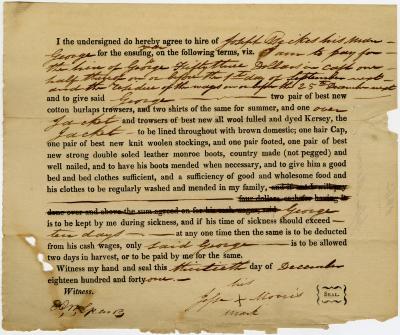 I the undersigned do hereby agree to hire of Joseph his man
George for the ensuing, on the following terms, viz. I am to pay for
the hire of George Fifty three Dollars in cash one
half thereof on or before the 1st day of September next
and the of the wages on or before the 25th December next
and to give said George two pair of best new
cotton burlaps trowsers, and two shirts of the same for summer, and one over
Jacket and trowsers of best new all wool fulled and dyed Kersey, the
Jacket to be lined throughout with brown domestic; one hair Cap,
one pair of best new knit woolen stockings, and one pair footed, one pair of best
new strong double soled leather monroe boots, country made (not pegged) and
well nailed, and to have his boots mended when necessary, and to give him a good
bed and bed clothes sufficient, and a sufficiency of good and wholesome food and
his clothes to be regularly washed and mended in my family, and if
four dollars
done over and above the sum agreed on for George
is to be kept by me during sickness, and if his time of sickness should exceed
ten days — at any one time then the same is to be deducted
from his cash wages, only said George — is to be allowed
two days in harvest, or to be paid by me for the same.
Witness my hand and seal this thirtieth day of December
eighteen hundred and forty one.
his
Witness. Jesse X Morris SEAL.
mark